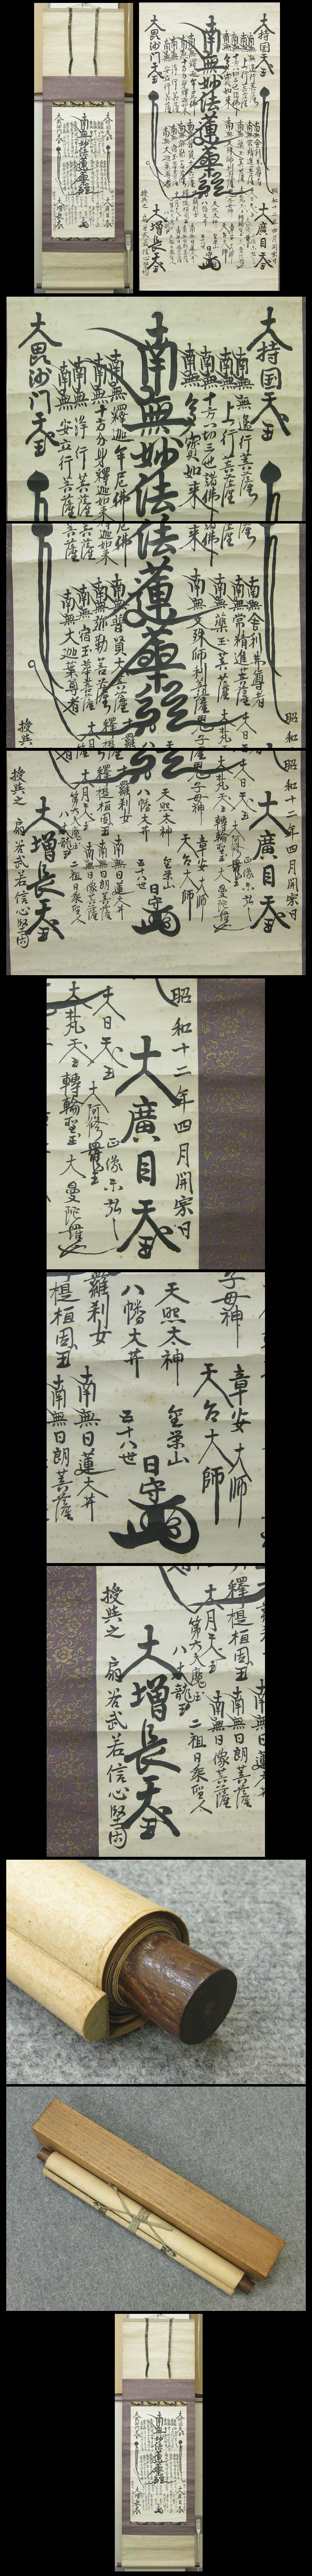 大持国天王
南無無邊行菩薩
南無上行菩薩
南無十方一切三世諸佛
南無多寳如来
南無妙法蓮華經
南無釋迦牟尼佛
南無十方分身釋迦如来
南無淨行菩薩
南無安立行菩薩
大毘沙門天王
南無舎利弗尊者
南無常精進菩薩
南無藥王菩薩
南無文殊師利菩薩
南無普賢大菩薩
南無弥勒菩薩
南無宿王華菩薩
南無大迦葉尊者
昭和十二年四月開宗日
大廣目天王
大日天王
大阿修羅王
大梵天王
轉輪聖王
大曼陀羅
鬼子母神
章安大師
天台大師
天照大神
八幡大井
五十八世
日守
十羅刹女
南無日蓮大井
釋提桓因王
南無日朗菩薩
大月天王
南無日像菩薩
第六天魔王
二祖日乘聖人
八大龍王
大增長天王
授與之
信心堅固